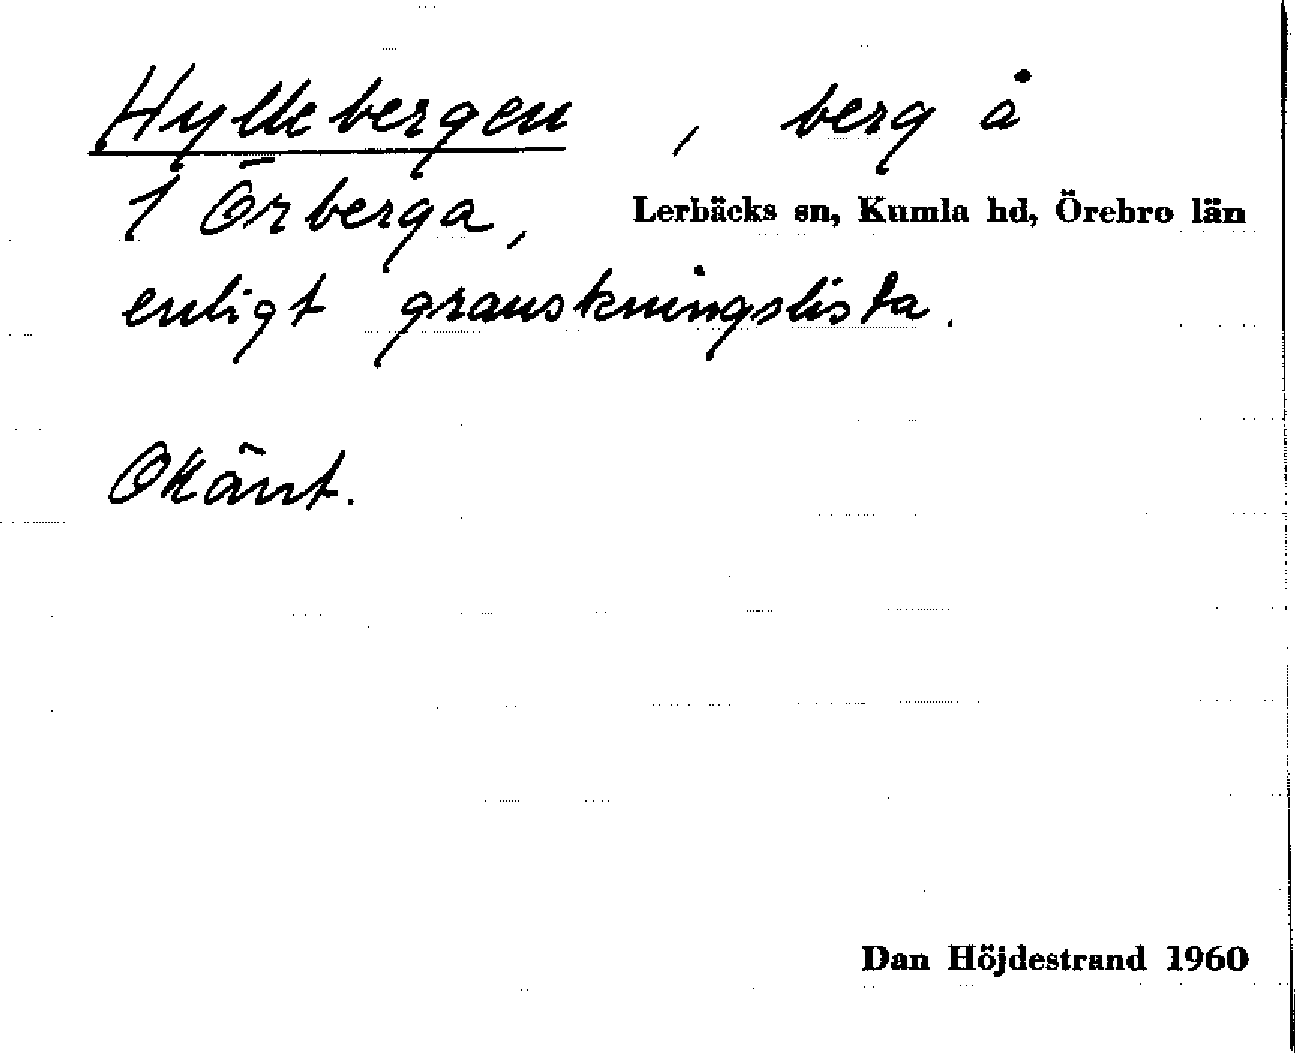 Hyllebergen, berg å
1 Örberga, Lerbäcks sn, Kumla hd, Örebro län
enligt granskningslista.
Okänt.
Dan Höjdestrand 1960